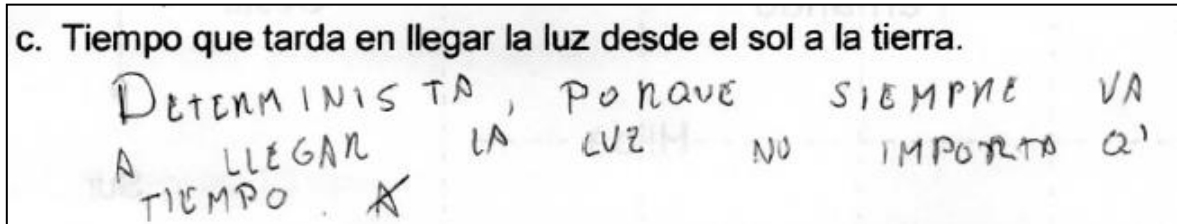 c. Tiempo que tarda en llegar la luz desde el sol a la tierra.
DETERMINISTA, PORQUE SIEMPRE VA
A LLEGAR LA LUZ NO IMPORTA Q'
TIEMPO.